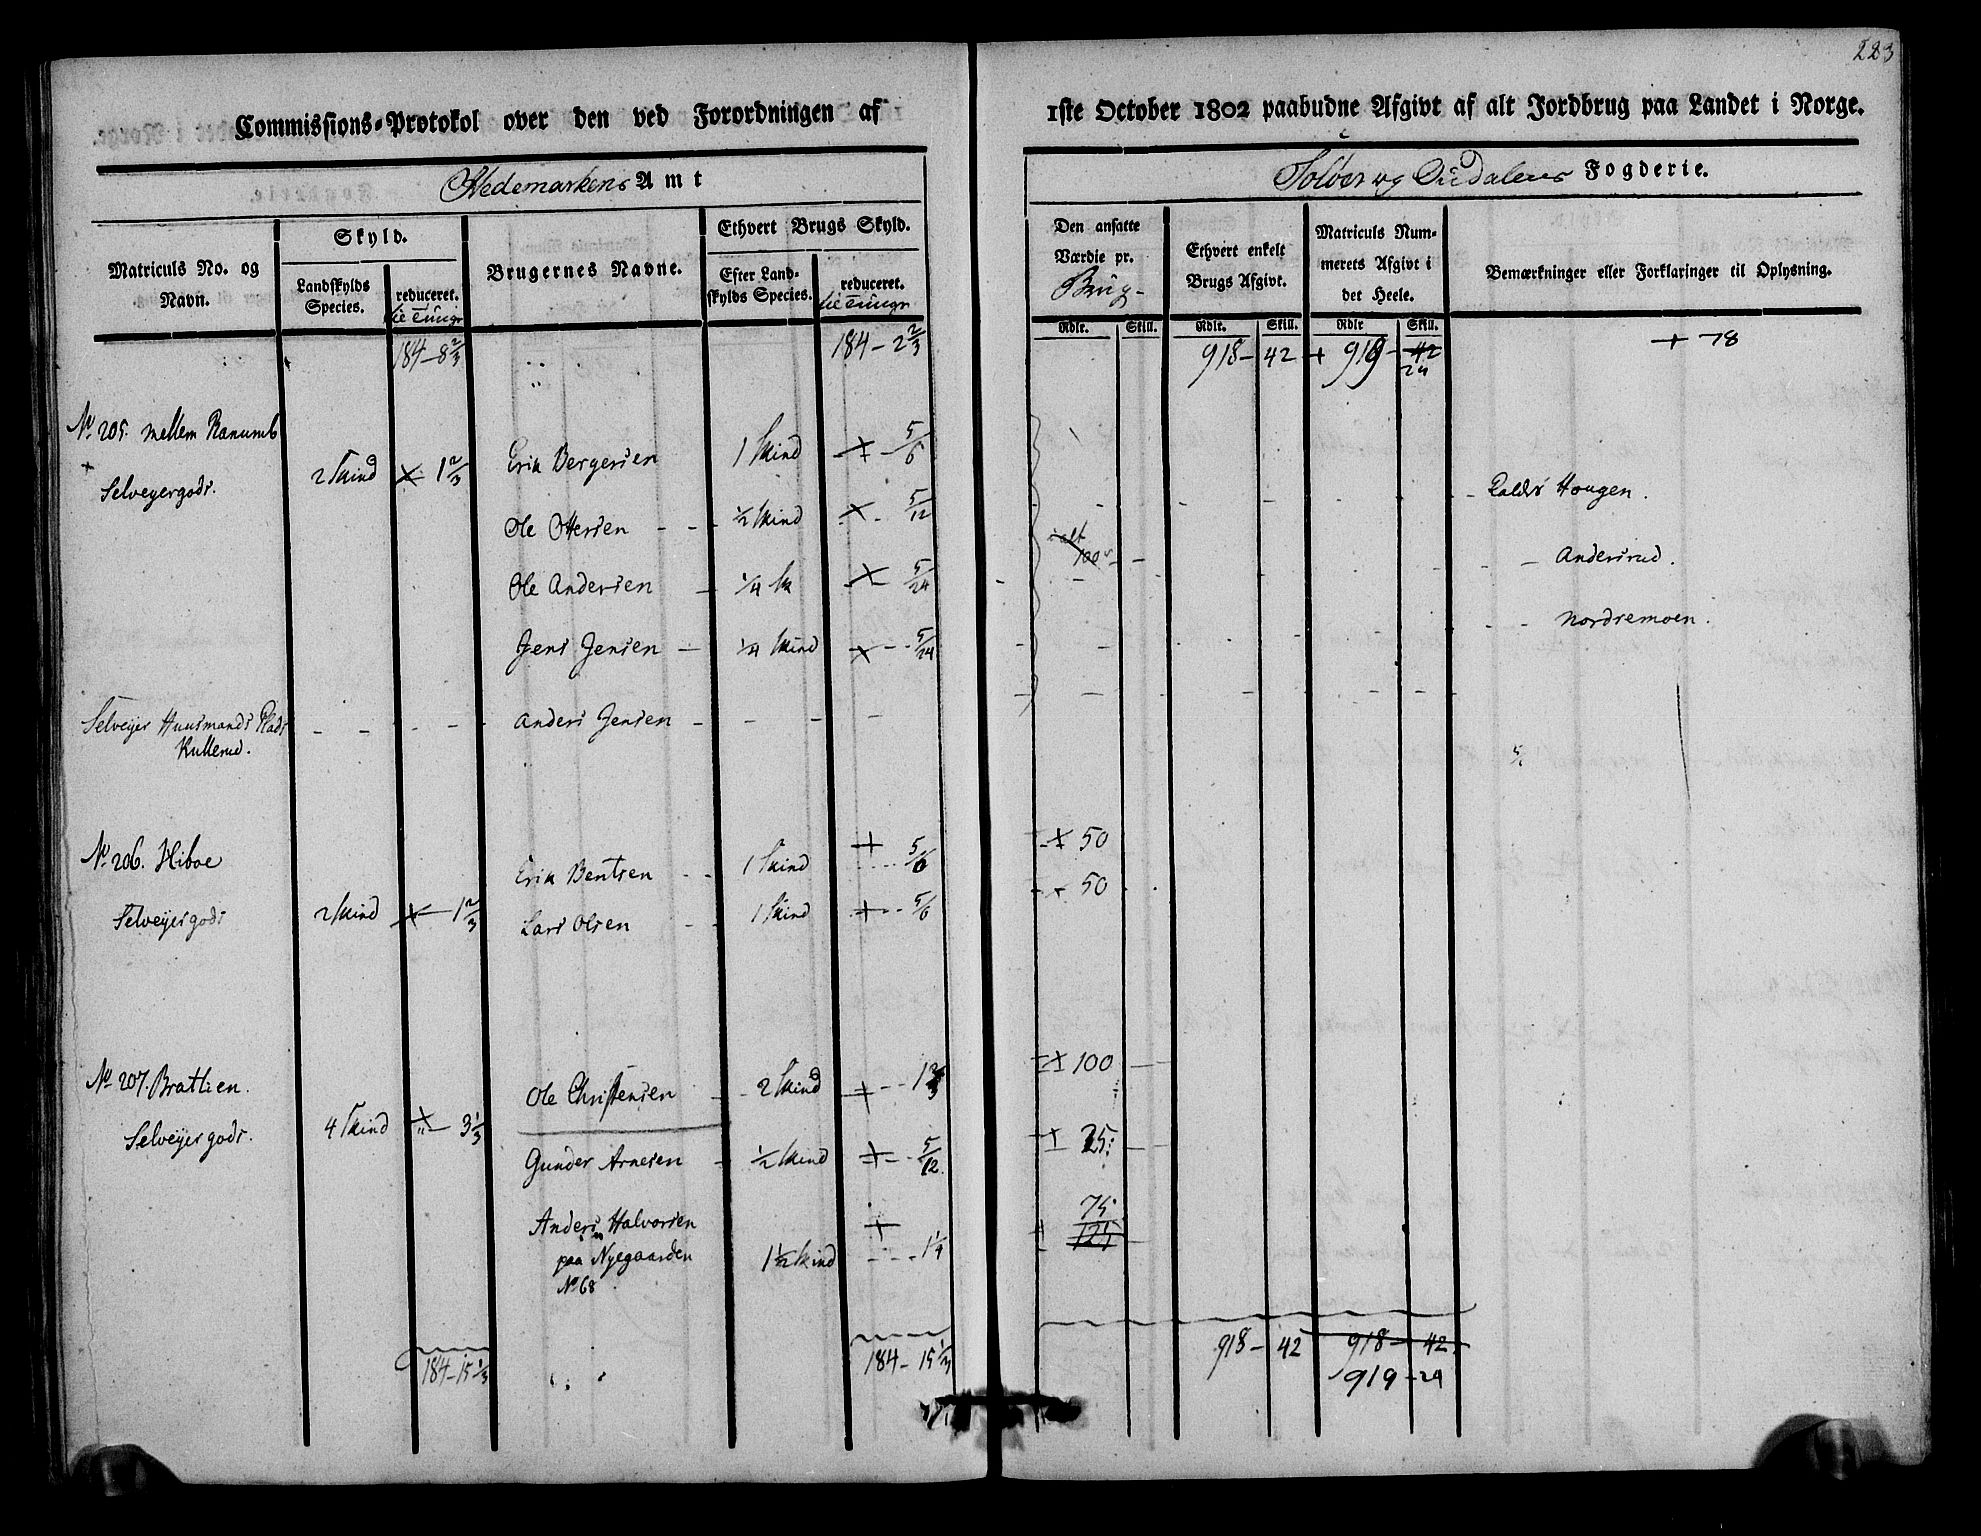 223
Commissions-Protokol over den ved Forordningen af 1ste October 1802 paabudne Afgivt af alt Jordbrug paa Landet i Norge.
Hedemarkens Amt
Soløer og Oudalens Fogderie.
Matriculs No. og Navn.
Skyld.
Landskylds Species.
reduceret.
Lie Tüngr
Brugernes Navne.
Ethvert Brugs Skyld.
Efter Landskylds Species.
reduceret.
Lie Tüngr
Den ansatte Værdie pr.
Brüg-
Ethvert enkelt Brugs Afgivt.
Matriculs Nummerets Afgivt i det Heele.
Bemærkninger eller Forklaringer til Oplysning.
Rdlr. Skill. Rdlr. Skill. Rdlr Skill.
184-8 2/3 184-2 2/3 918- 42 + 919- 42 + 78
24
No 205. Mellem Ranumb
Selveyergods. 2 Skind 1 2/3 Erik Bergersen 1 Skind 5/6
Ole Ottersen - - - 1/2 Skind 5/12 Kaldes Hougen.
Ole Andersen - 1/4 Sk 5/24 i alt 100 Andersrud.
Jens Jensen - 1/4 Skind 5/24 Nordremoen.
Selveyer Huusmands Plads - - - - Anders Jensen - - - -
Kullerud.
No 206. Hiboe Erik Bentsen - - 1 Skind 5/6 50
Selveyergods 2 Skind 1 2/3 Lars Olsen - - 1 Skind 5/6 50
No 207. Bratlien. Ole Christensen - - 2 Skind 1 2/3 100
Selveyergods. 4 Skind 3 1/3
Gunder Arnesen - 1/2 Skind 5/12. 25
Anders Halvorsen 75
paa Nyegaarden 1 1/2 Skind 1 1/4 125
No 68
184-15 1/3 184-15 1/3 918- 42 918- 42
919-24